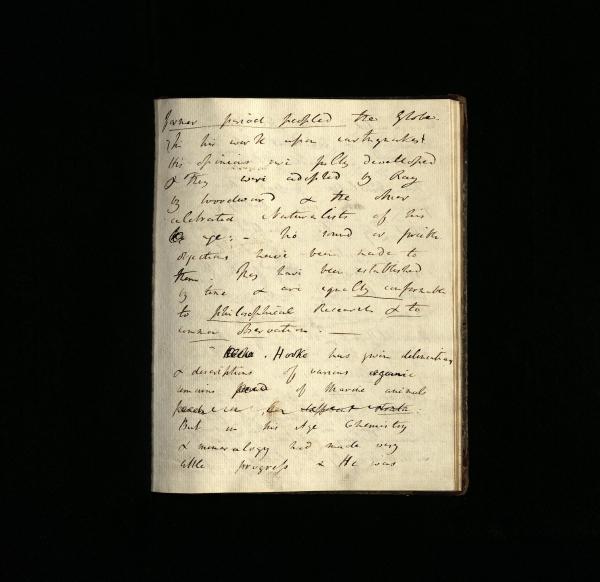 former period peopled the Globe.
In his work upon earthquakes
His opinions are fully developed
& they were adopted by Ray
by Woodward & the other
celebrated Naturalists of his
age; - No sound or
objections have been made to
them. They have been established
by time & are equally conformable
to philosophical Research & to
common observation. —
Hooke has given delineations
& descriptions of various organic
remains of Marine animals
found in
But in his Age Chemistry
& mineralogy had made very
little progress & He was